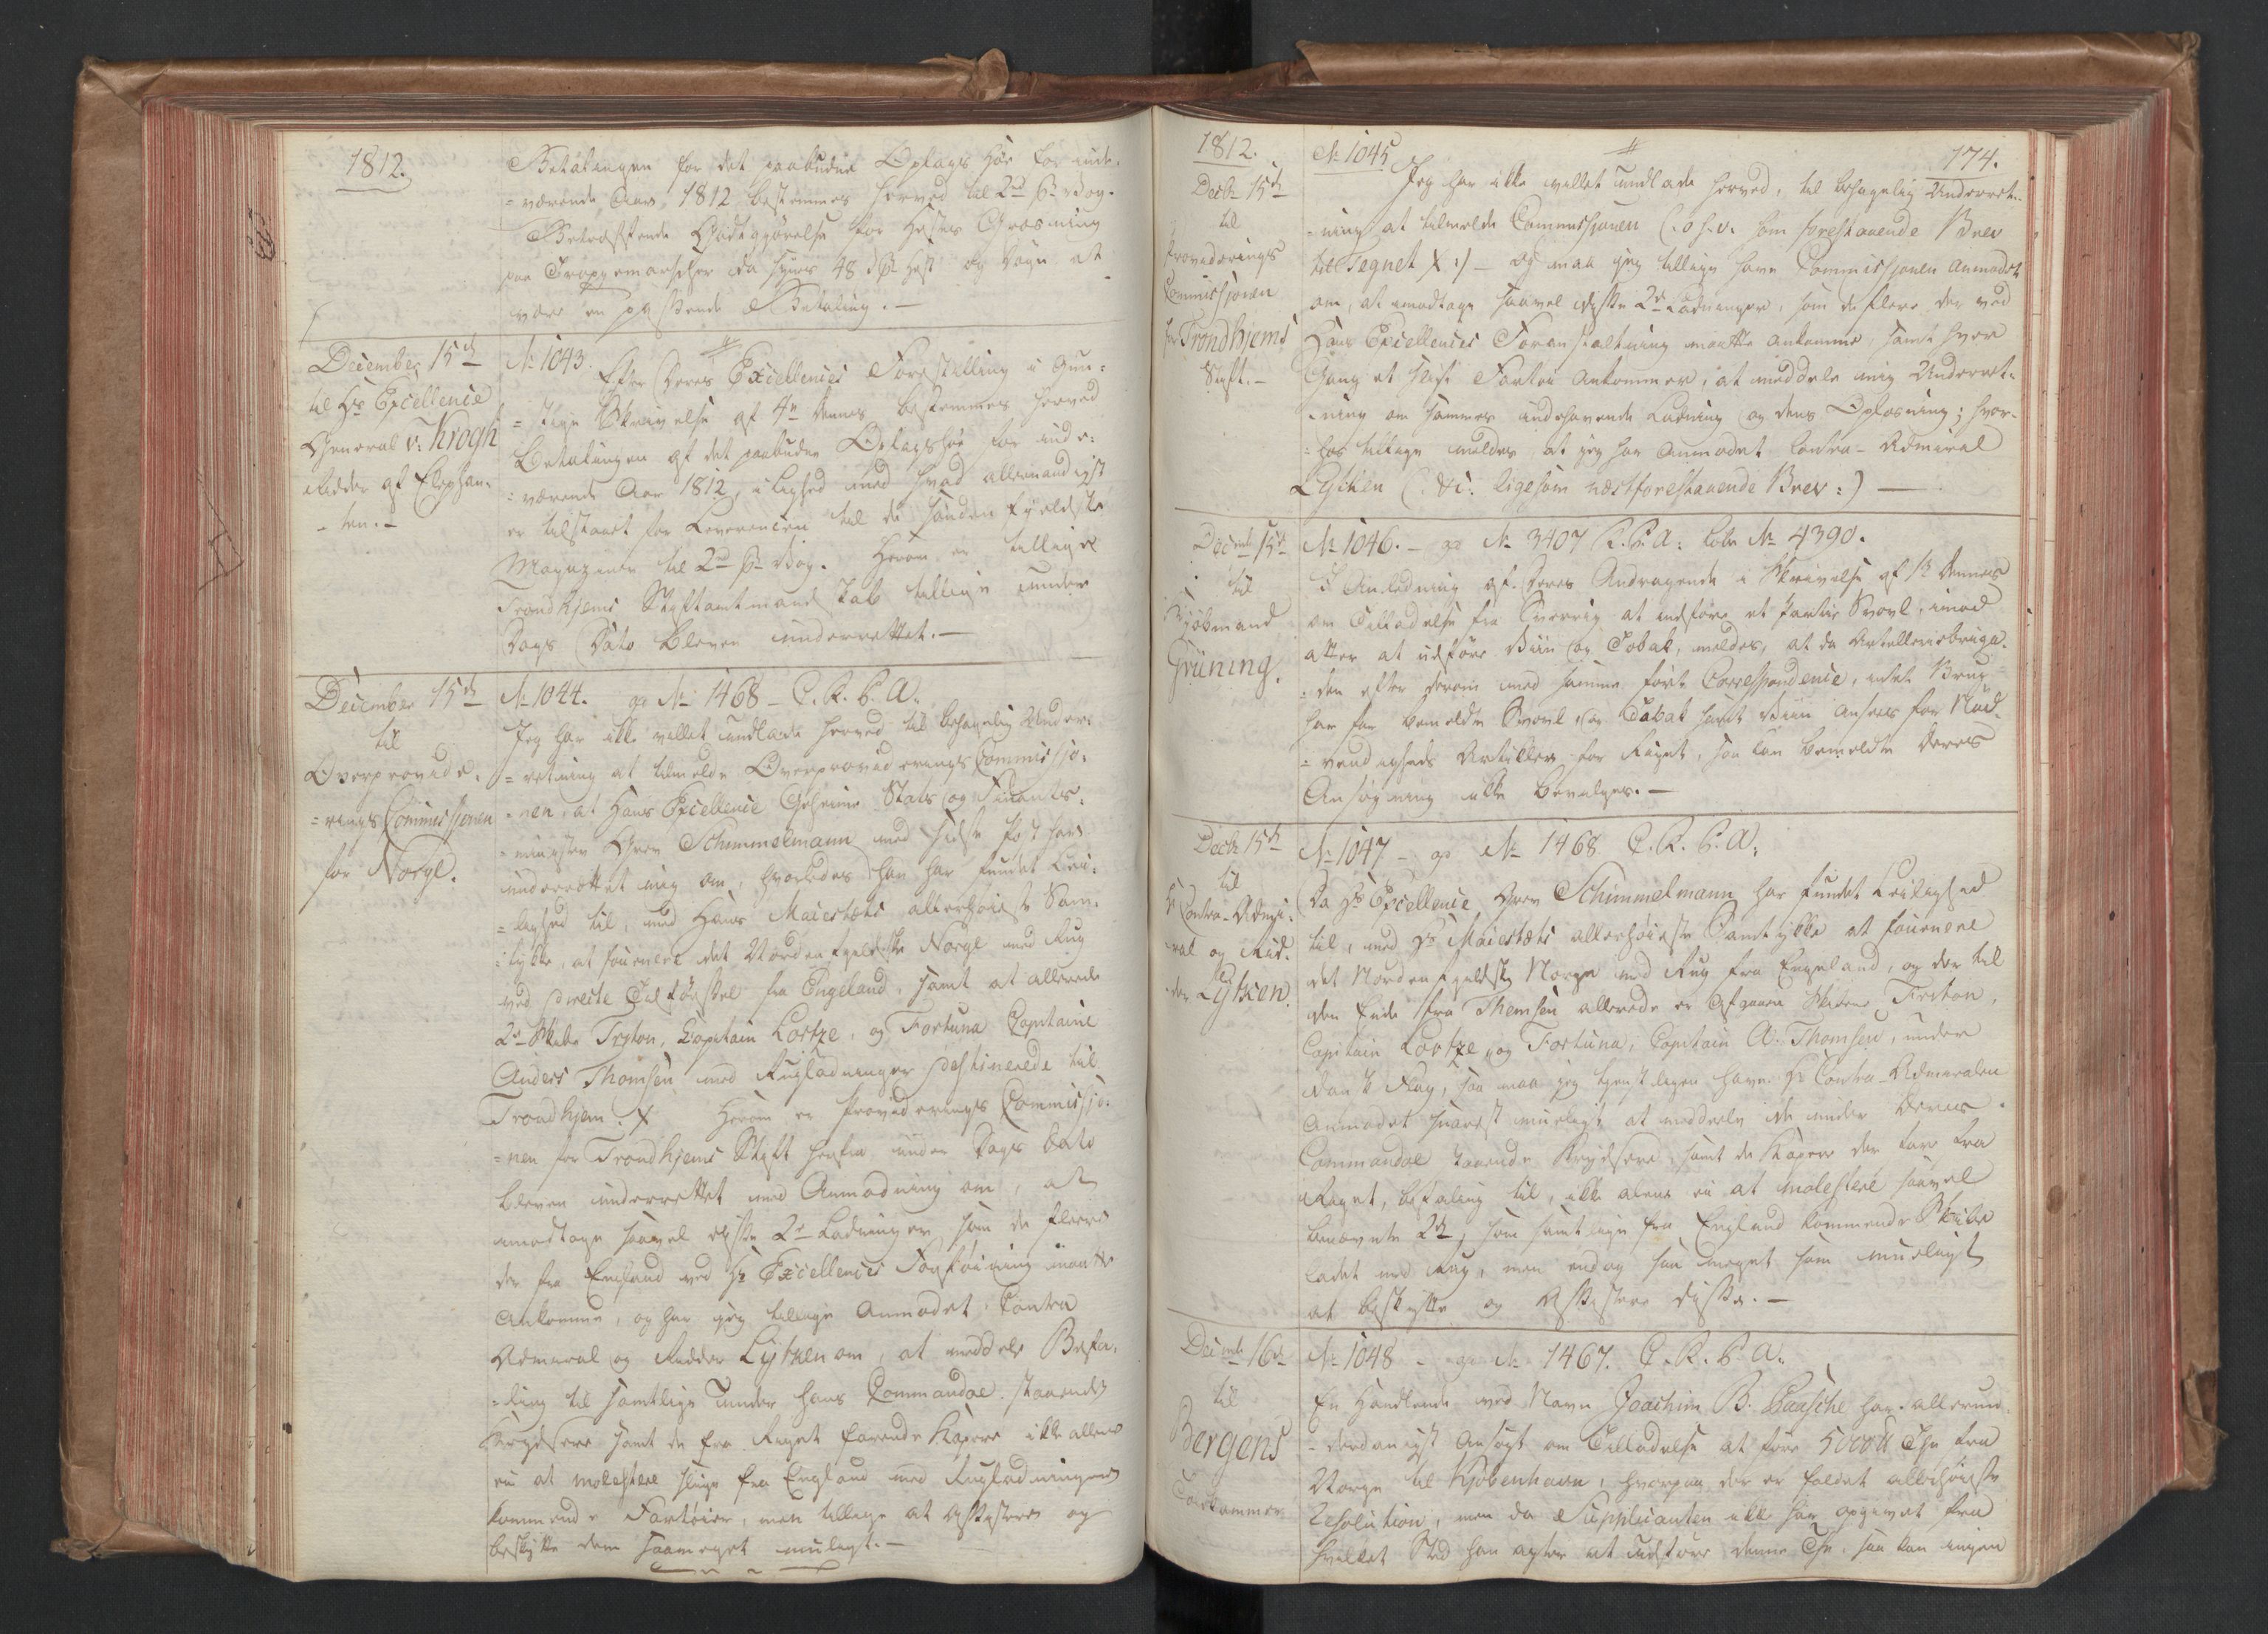 1812.
Betalingen for det paabudne Oplags Höe for inde-
-værende Aar 1812 bestemmes herved til 2rd pr Vog.
Betræffende Godtgjörelse for Hestes Græsning
paa Troppemarscher da synes 48 s pr Hest og Dögn at
være en passende Betaling. —
December 15de
til Hs Excellence
General v: Krogh
Ridder af Elephan-
-ten. —
No 1043.
Efter Deres Excellences Forestilling i Gun-
-stige Skrivelse af 4de dennes bestemmes herved
Betalingen af det paabudne Oplagshöe for inde-
-værende Aar 1812, i Lighed med hvad allernaadigst
er tilstaaet for Leverencen til de söndenfjeldske
Magaziner til 2rd pr Vog. Herom er tillige
Trondhjems Stiftamtmandskab tillige under
Dags Dato bleven underrettet. —
December 15de
til
Overprovide-
-rings Commissjonen
for Norge.
No 1044. ad No 1468 - C. R. P. A.
Jeg har ikke villet undlade herved til behagelig Under-
-retning at tilmelde Overprovideringscommissjo-
-nen, at Hans Excellence Geheime Stats og Finants-
-minister Grev Schimmelmann med sidste Post har
underrettet mig om, hvorledes han har fundet Lei-
-lighed til, med Hans Maiestæts allerhöieste Sam-
-tykke, at fournere det Nordenfjeldske Norge med Rug
ved directe Tilförsel fra Engeland, samt at allerede
2de Skibe Tryton, Capitain Lortze, og Fortuna Capitaine
Anders Thomsen med Rugladninger destinerede til
Trondhjem. X Herom er Provideringscommissjo-
-nen for Trondhjems Stift herfra under Dags Dato
bleven underrettet med Anmodning om, at
modtage saavel disse 2de Ladninger som de flere
der fra England ved Hs Excellences Forföining maatte
ankomme, og har jeg tillige anmodet Contra
Admiral og Ridder Lytken om, at meddele Befa-
-ling til samtlige under hans Commandoe staaende
Krydsere samt de fra Riget farende Kapere ikke allene
ei at molestere slige fra England med Rugladninger
kommende Fartöier, men tillige at assistere og
beskytte dem saameget muligt. —
1812.
174.
Decbr 15de
til
Providerings
Commissjonen
for Trondhjems
Stift. —
No 1045
Jeg har ikke villet undlade herved, til behagelig Underret-
-ning at tilmelde Commissjonen (: o. s. v. som forestaaende Brev
til Tegnet X :) — og maa jeg tillige have Commissjonen anmodet
om, at modtage saavel disse 2de Ladninger, som de flere der ved
Hans Excellences Foranstaltning maatte ankomme, samt hver
Gang et sligt Fartöi ankommer, at meddele mig Underret-
-ning om sammes indehavende Ladning og dens Oplosning; hvor-
-hos tillige meldes at jeg har anmodet Contra-Admiral
Lytken (: &c. ligesom næstforestaaende Brev :) —
Decembr 15de
til
Kjöbmand
Grüning.
No 1046. - ad No 3407 R. P. A. Lobe No 4390.
I Anledning af Deres Andragende i Skrivelse af 1ste dennes
om Tilladelse fra Sverrig at indföre et Partie Svovl, imod
atter at udföre Viin og Tobak, meldes, at da Artilleriebriga-
-den efter derom med samme fört Correspondence, intet Brug
har for bemeldte Svovl, og Tobak samt Viin ansees for Nöd-
-vendigheds Artikler for Riget, saa kan bemeldte Deres
Ansögning ikke bevilges. —
Decbr 15de
til
Hr Contra-Admi-
-ral og Rid-
-der Lytken.
No 1047 - ad No 1468 C. R. P. A.
Da Hs Excellence Grev Schimmelmann har fundet Leilighed
til, med Hs Maiestæts allerhöieste Samtykke at fournere
det Nordenfjeldske Norge med Rug fra Engeland, og der til
den Ende fra Themsen allerede er afgaaen Skibene Triton,
Capitain Lortze, og Fortuna, Capitain A. Thomsen, under
Dansk Flag, saa maa jeg tjenstligen have Hr Contra-Admiralen
anmodet snarest mueligt at meddele de under Deres
Commandoe staaende Krydsere, samt de Kapere der fare fra
Riget, Befaling til, ikke alene ei at molestere saavel
benævnte 2de, som samtlige fra England kommende Skibe
ladet med Rug, men endog saa meget som mueligt
at beskytte og assistere disse. —
Decembr 16de
til
Bergens
Toldkammer
No 1048 - ad No 1467. C. R. P. A.
En Handlende ved Navn Joachim B. Paasche har allerun-
-derdanigst ansögt om Tilladelse at före 5000 ℔ The fra
Norge til Kjöbenhavn, hvorpaa der er faldet allerhöieste
Resolution, men da Supplicanten ikke har opgivet fra
hvilket Sted han agter at udföre denne The, saa kan ingen